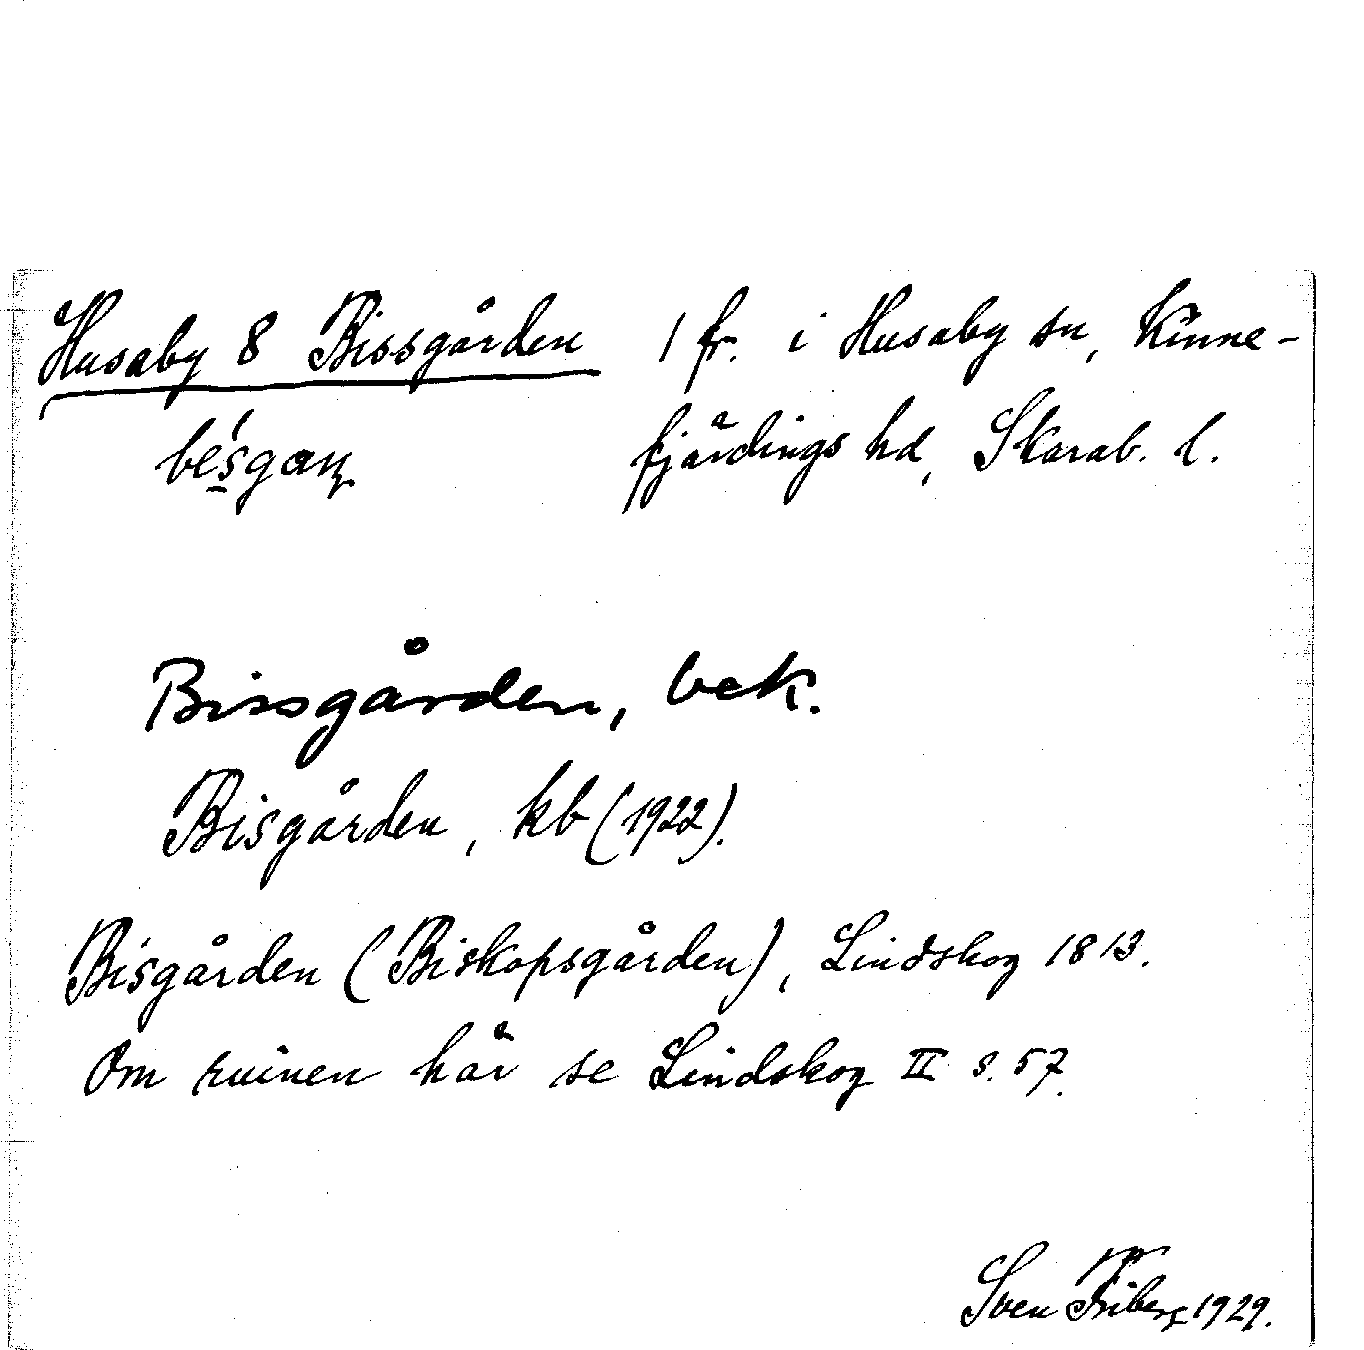 Husaby 8 Bissgården 1 fr. i Husaby sn, Kinne-
fjärdings hd, Skarab. l.
Bissgården, bek.
Bisgården, kb (1922).
Bisgården (Biskopsgården), Lindskog 1813.
Om ruinen här se Lindskog II s. 57.
Sven Friberg 1929.